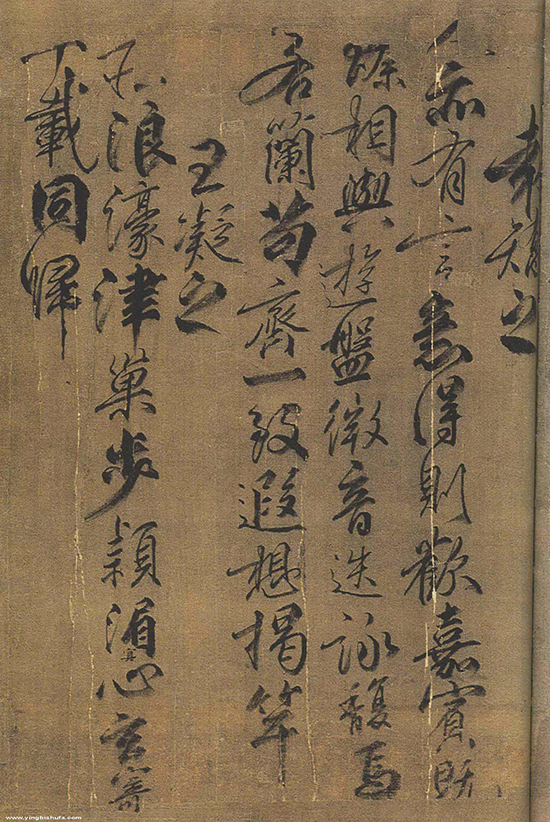 袁矯之
人亦有言意得則歡嘉賓既
臻相與遊盤微音迭詠馥焉
若蘭苟齊一致遐想揭竿
王凝之
莊浪濠津巢步潁湄冥心玄寄
千載同歸
www.yingbishufa.com